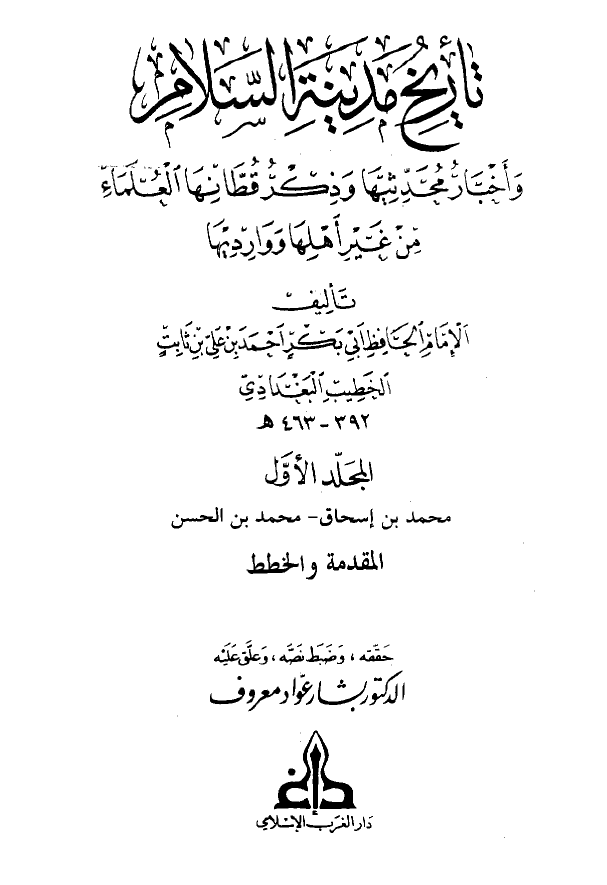 تأريخ مدينة السلام
وَأخْبَارُ مُحَدِّثِيهَا وَذِكْرُ قُطَّانِهَا الْعُلَمَاءِ
مِنْ غَيْرِ أَهْلِهَا وَوَارِدِيهَا
تأليف
الإمام الحافظ أبي بكر أحمد بن علي بن ثابت
الخطيب البغدادي
٣٩٢ - ٤٦٣ هـ
المجلد الأول
محمد بن إسحاق - محمد بن الحسن
المقدمة والخطط
حَقَّقَه، وَضَبَط نَصَّه، وَعَلَّق عَلَيْه
الدكتور بشار عوّاد معروف
دار الغرب الإسلامي